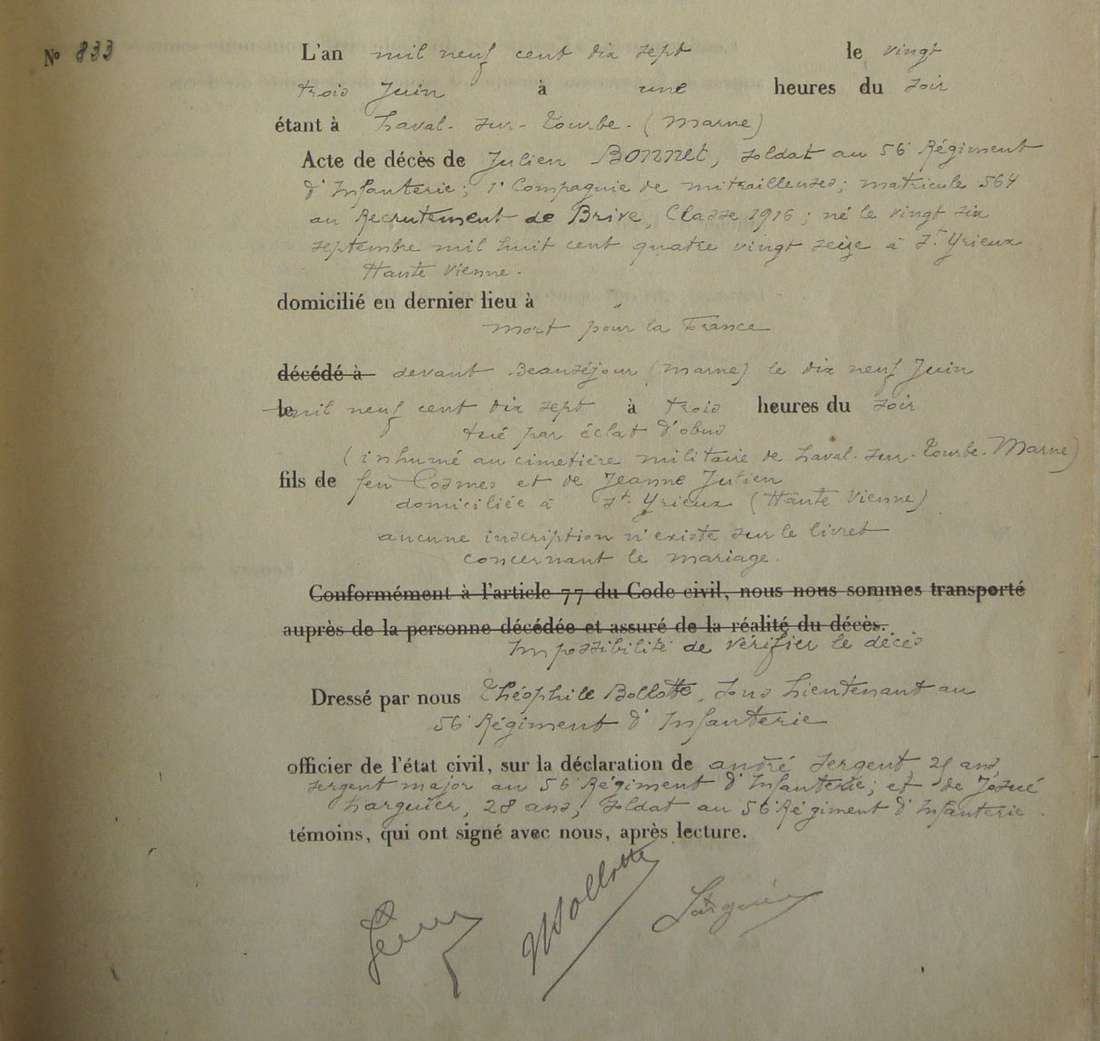 N° 833
L'an mil neuf cent dix sept le vingt
trois Juin à une heures du soir
étant à Laval-sur-Tourbe. (Marne)
Acte de décès de Julien BONNET, soldat au 56 Régiment
d'Infanterie; 1e Compagnie de mitrailleuses; matricule 564
au Recrutement de Brive, Classe 1916; né le vingt six
septembre mil huit cent quatre vingt seize à St Yrieux
Haute Vienne.
domicilié en dernier lieu à
mort pour la France
décédé à devant Beauséjour (Marne) le dix neuf Juin
le mil neuf cent dix sept à trois heures du soir
tué par éclat d'obus
(inhumé au cimetière militaire de Laval-sur-Tourbe-Marne)
fils de feu Cosmes et de Jeanne Julien
domiciliée à St Yrieux (Haute Vienne)
aucune inscription n'existe sur le livret
concernant le mariage.
Conformément à l'article 77 du Code civil, nous nous sommes transporté
auprès de la personne décédée et assuré de la réalité du décès.
Impossibilité de vérifier le décès
Dressé par nous Théophile Bollotte, sous Lieutenant au
56 Régiment d'Infanterie
officier de l'état civil, sur la déclaration de andré Sergent, ans
sergent major au 56 Régiment d'Infanterie; et de Josué
Larguier, 28 ans, soldat au 56 Régiment d'Infanterie.
témoins, qui ont signé avec nous, après lecture.
Bollotte Larguier